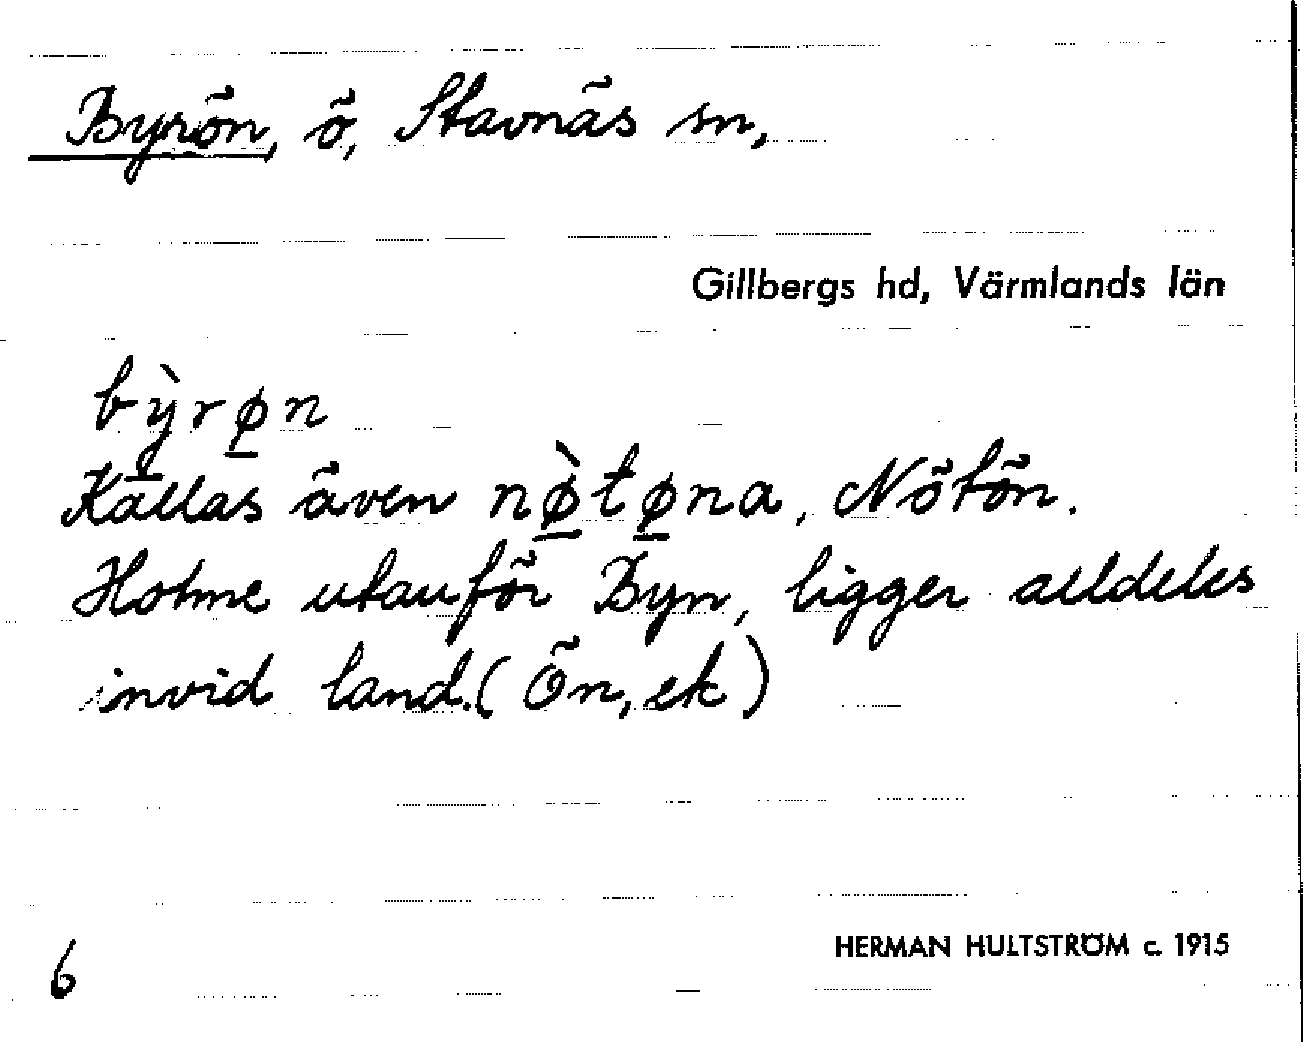 Byrön, ö, Stavnäs sn,
Gillbergs hd, Värmlands län
bỳrø̱n
Kallas även nø̱̀tø̱na, Nötön.
Holme utanför Byn, ligger alldeles
invid land. (Ön, ek)
6
HERMAN HULTSTRÖM c. 1915